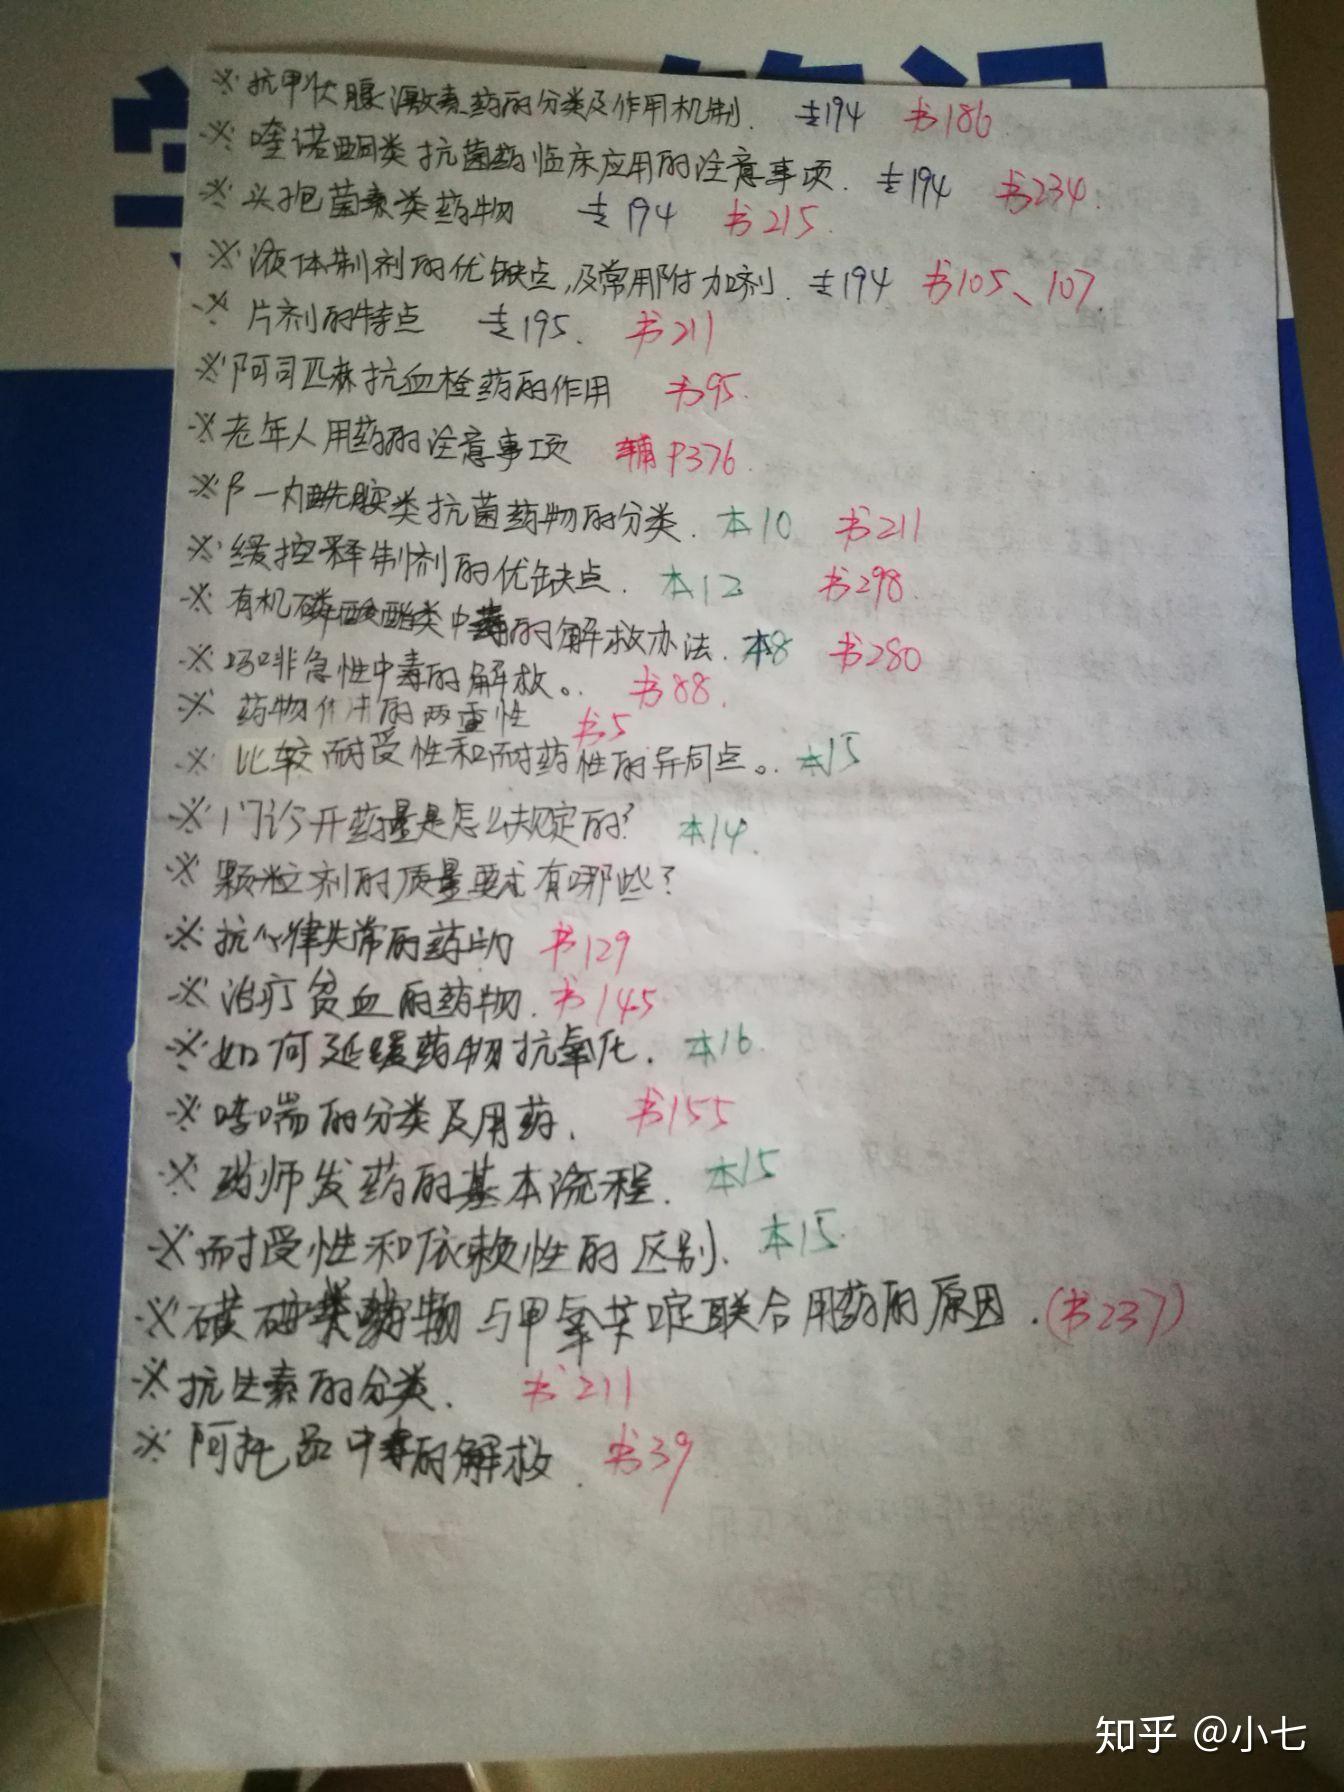 ※抗甲状腺激素药的分类及作用机制. 专194 书186
※喹诺酮类抗菌药临床应用的注意事项. 专194 书234.
※头孢菌素类药物 专194 书215.
※液体制剂的优缺点,及常用附加剂. 专194 书105、107
※片剂的特点 专195. 书211
※阿司匹林抗血栓药的作用 书95.
※老年人用药的注意事项 辅P376.
※β一内酰胺类抗菌药物的分类. 本10 书211
※缓控释制剂的优缺点. 本12 书298.
※有机磷酸酯类中毒的解救办法. 本8 书280
※吗啡急性中毒的解救。 书88.
※药物作用的两重性 书5
※比较耐受性和耐药性的异同点。 本15
※门诊开药量是怎么规定的? 本14.
※颗粒剂的质量要求有哪些?
※抗心律失常的药物 书129
※治疗贫血的药物. 书145
※如何延缓药物抗氧化. 本16.
※哮喘的分类及用药. 书155
※药师发药的基本流程. 本15
※耐受性和依赖性的区别. 本15.
※磺 类药物与甲氧苄啶联合用药的原因.(书237)
※抗生素的分类. 书211
※阿托品中毒的解救. 书39
知乎 @小七